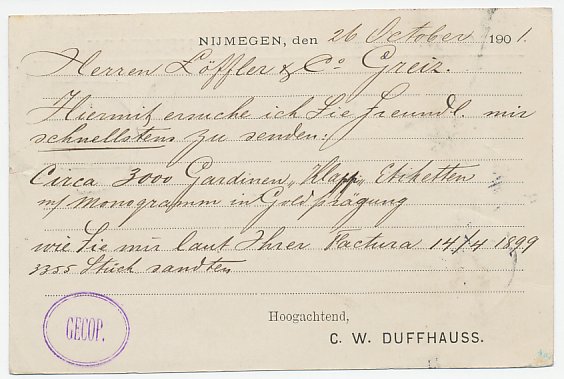 NIJMEGEN, den 26 October 1901.
Herren Löffler & Co Greiz.
Hiermit ersuche ich Sie freundl. mir
schnellstens zu senden:
Circa 3000 Gardinen „Klapp“ Etiketten
m/ Monogramm in Goldprägung
wie Sie mir laut Ihrer Factura 14/4 1899
3355 Stück sandten
Hoogachtend,
C. W. DUFFHAUSS.
GECOP.